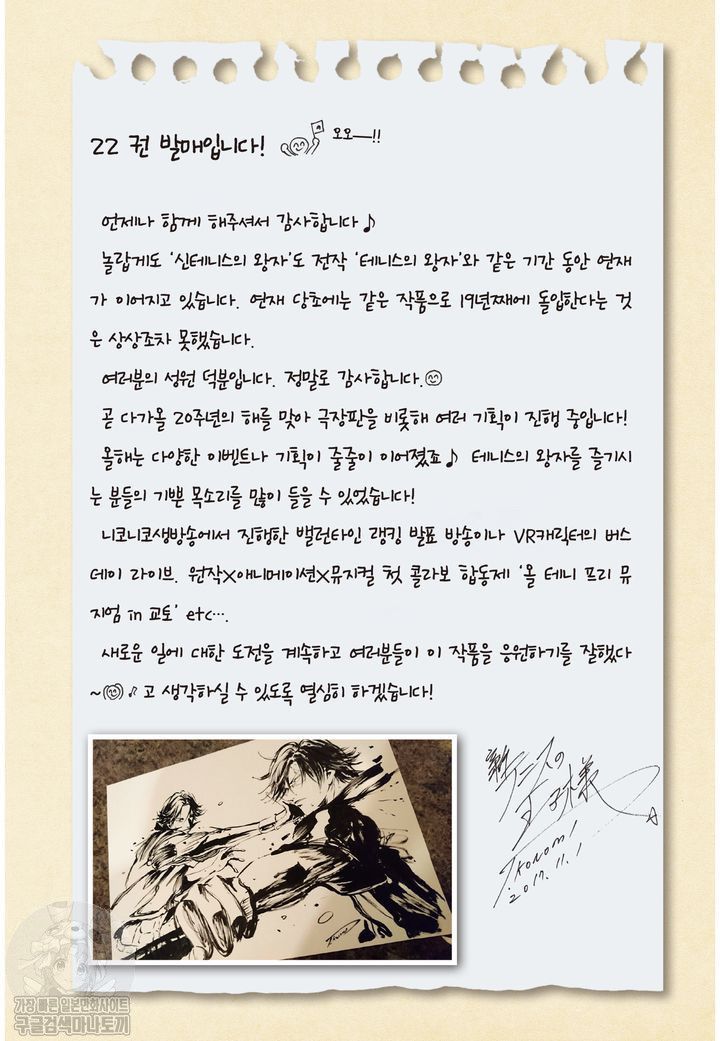 22 권 발매입니다! 오오—!!
언제나 함께 해주셔서 감사합니다♪
놀랍게도 '신테니스의 왕자'도 전작 '테니스의 왕자'와 같은 기간 동안 연재
가 이어지고 있습니다. 연재 당초에는 같은 작품으로 19년째에 돌입한다는 것
은 상상조차 못했습니다.
여러분의 성원 덕분입니다. 정말로 감사합니다.
곧 다가올 20주년의 해를 맞아 극장판을 비롯해 여러 기획이 진행 중입니다!
올해는 다양한 이벤트나 기획이 줄줄이 이어졌죠♪ 테니스의 왕자를 즐기시
는 분들의 기쁜 목소리를 많이 들을 수 있었습니다!
니코니코생방송에서 진행한 밸런타인 랭킹 발표 방송이나 VR캐릭터의 버스
데이 라이브. 원작×애니메이션×뮤지컬 첫 콜라보 합동제 '올 테니 프리 뮤
지엄 in 교토' etc….
새로운 일에 대한 도전을 계속하고 여러분들이 이 작품을 응원하기를 잘했다
~♪고 생각하실 수 있도록 열심히 하겠습니다!
新テニスの
王子様
T.KONOMI
2017.11.1
가장 빠른 일본만화사이트
구글검색마나토끼